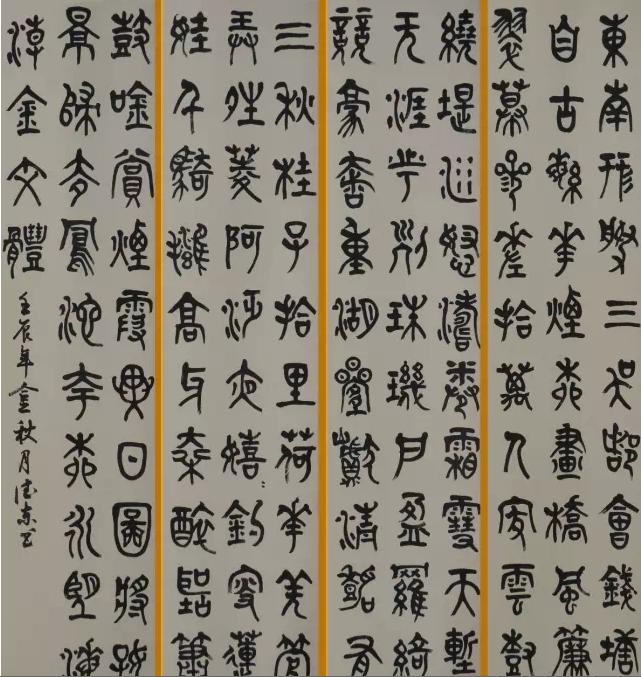 東南形勝三吳都會錢塘
自古繁華煙柳畫橋風簾
翠幕參差拾萬人家雲樹
繞堤沙怒濤卷霜雪天塹
无涯市列珠璣戶盈羅綺
競豪奢重湖疊巘清嘉有
三秋桂子拾里荷華羌管
弄晴菱歌泛夜嬉嬉釣叟蓮
娃千騎擁高牙乘醉聽簫
鼓吟賞煙霞異日圖將好
景歸去鳳池夸柳永望海
潮金文體
壬辰年金秋月德東書